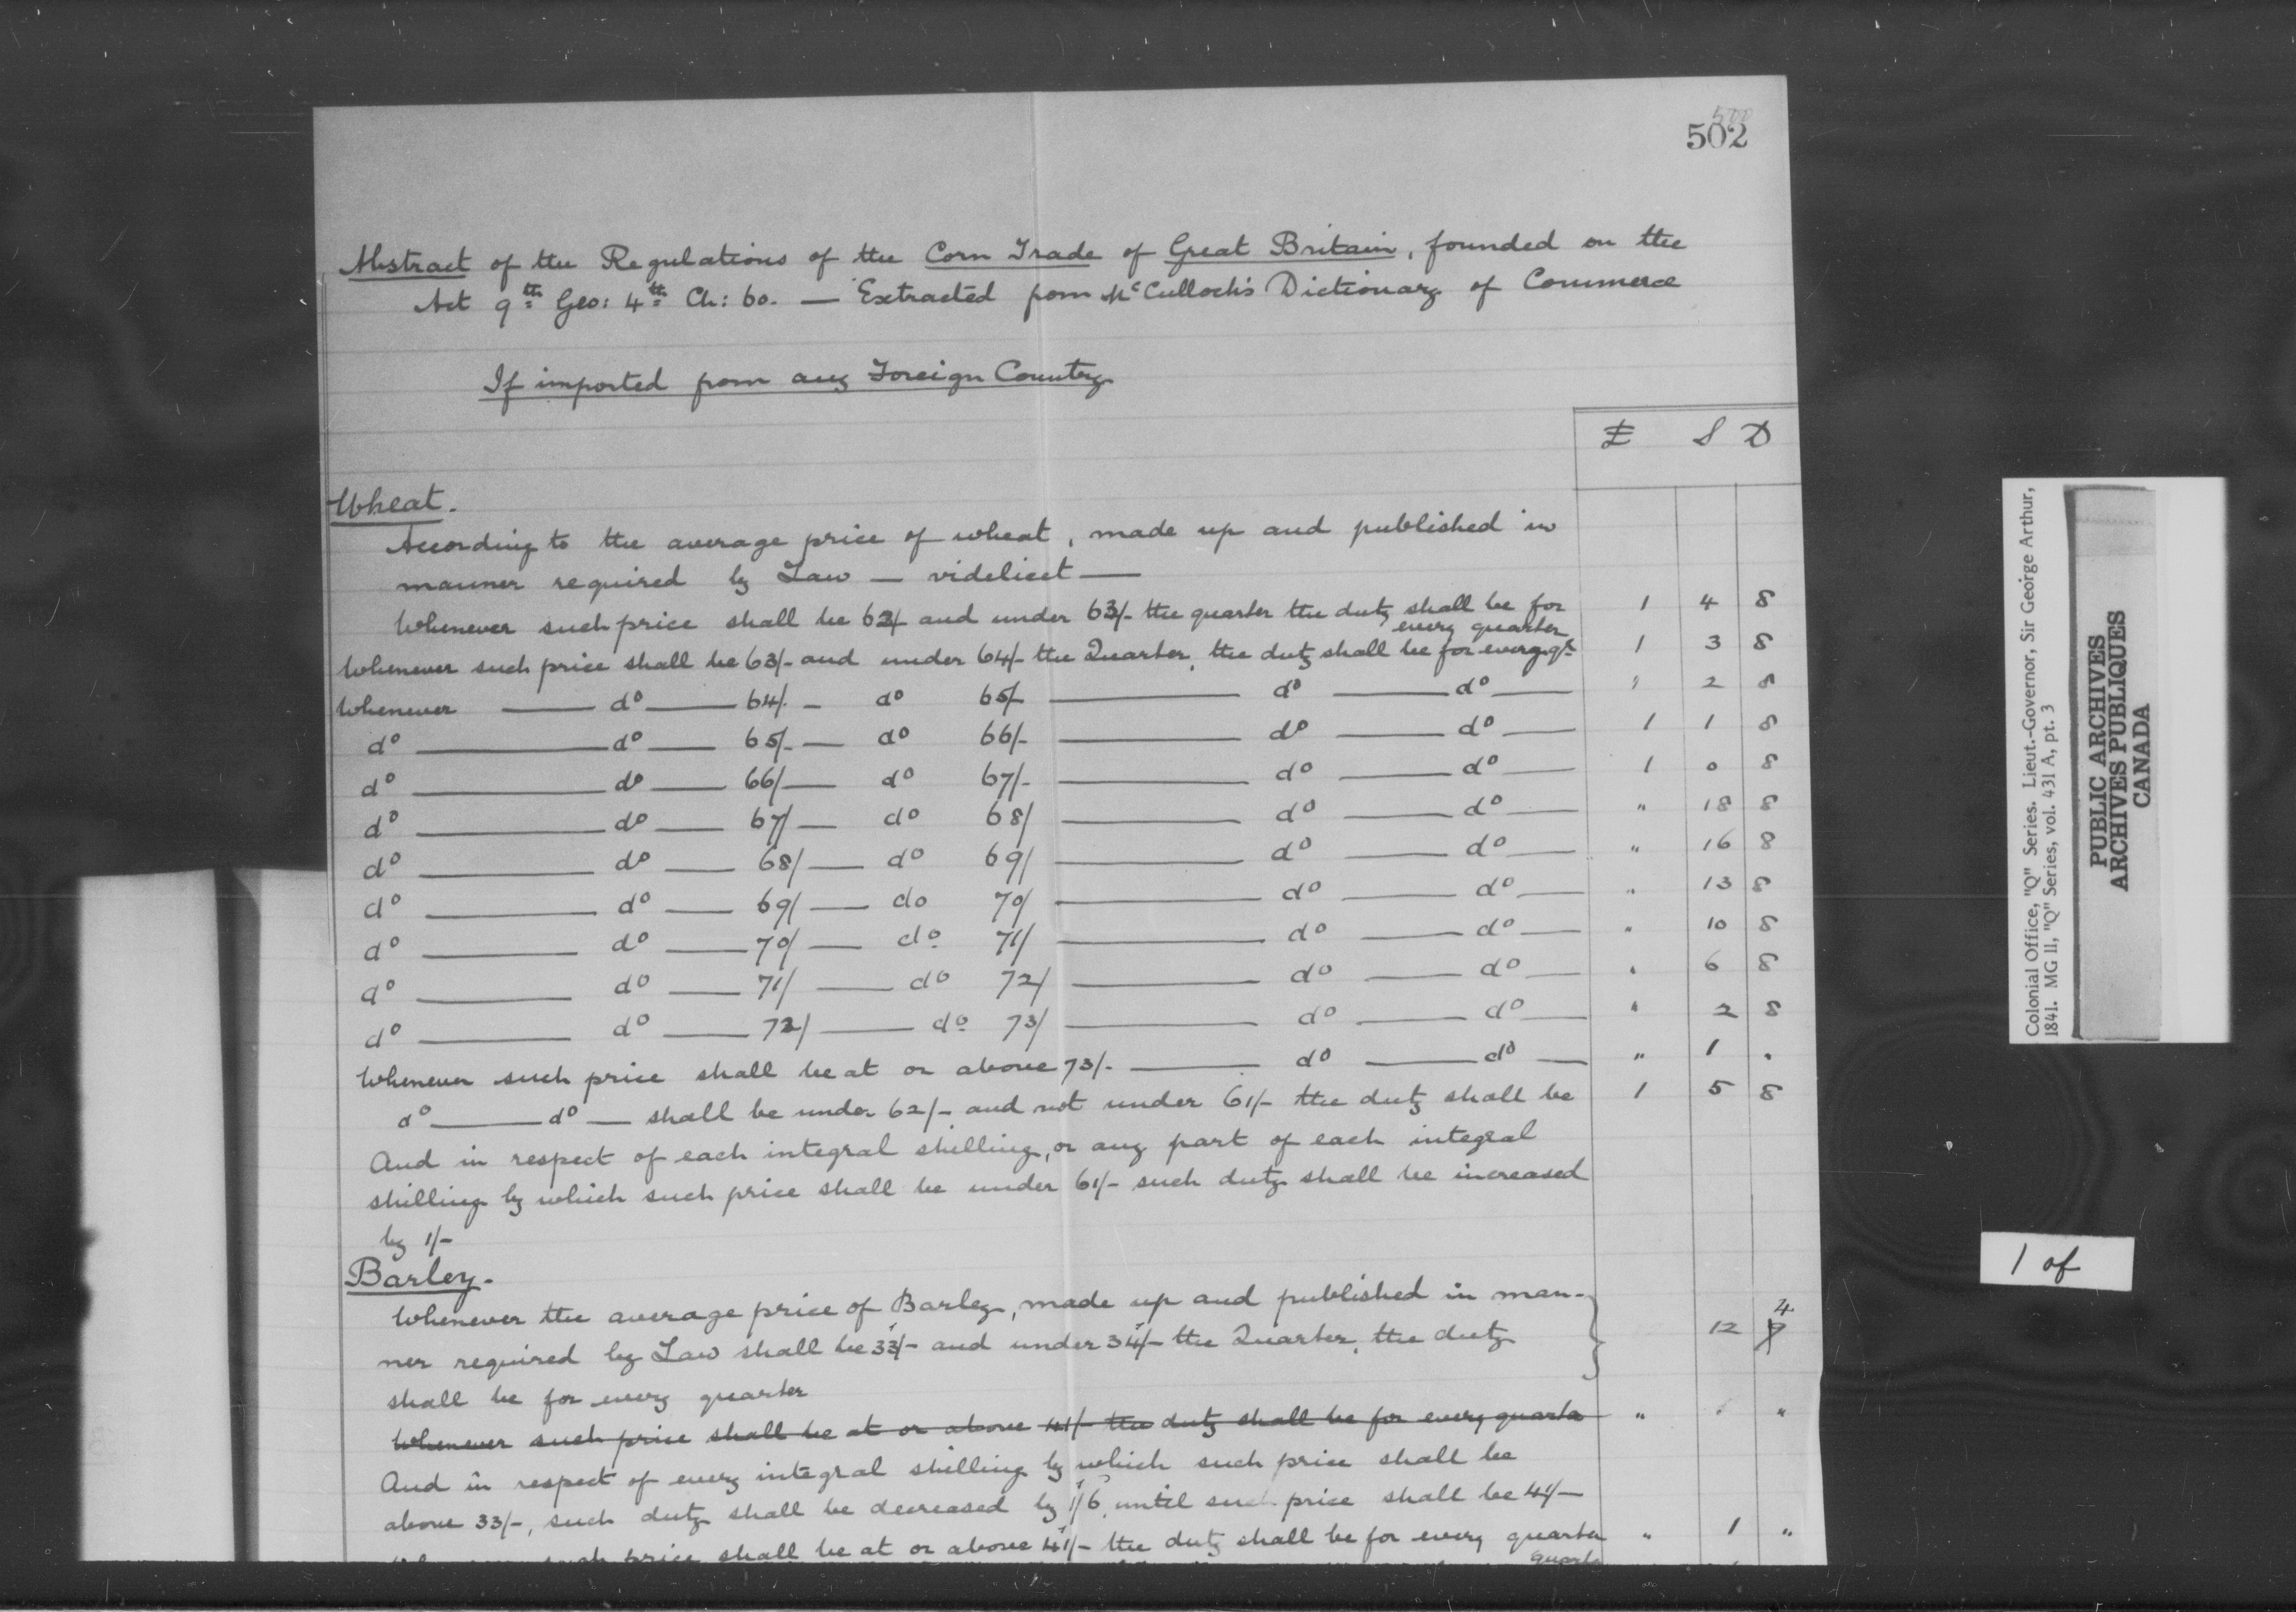 500
502
Abstract of the Regulations of the Corn Trade of Great Britain, founded on the
Act 9th Geo: 4th Ch: 60. — Extracted from McCulloch's Dictionary of Commerce
If imported from any Foreign Country
£ S D
Wheat.
According to the average price of wheat, made up and published in
manner required by Law — videlicet —
Whenever such price shall be 62/ and under 63/- the quarter the duty shall be for every quarter 1 4 8
Whenever such price shall be 63/- and under 64/- the Quarter, the duty shall be for every qr 1 3 8
Whenever — do — 64/. — do 65/- — do — do — " 2 8
do — do — 65/- — do 66/- — do — do — 1 1 8
do — do — 66/ — do 67/- — do — do — 1 0 8
do — do — 67/ — do 68/ — do — do — " 18 8
do — do — 68/ — do 69/ — do — do — " 16 8
do — do — 69/ — do 70/ — do — do — " 13 8
do — do — 70/ — do 71/ — do — do — " 10 8
do — do — 71/ — do 72/ — do — do — " 6 8
do — do — 72/ — do 73/ — do — do — " 2 8
Whenever such price shall be at or above 73/. — do — do — " 1 "
do — do — shall be under 62/- and not under 61/- the duty shall be 1 5 8
And in respect of each integral shilling, or any part of each integral
shilling by which such price shall be under 61/- such duty shall be increased
by 1/-
Barley.
Whenever the average price of Barley, made up and published in man-
ner required by Law shall be 33/- and under 34/- the Quarter, the duty 12 4
shall be for every quarter
Whenever such price shall be at or above 41/- the duty shall be for every quarter " "
And in respect of every integral shilling by which such price shall be
above 33/-, such duty shall be decreased by 1/6, until such price shall be 41/-
such price shall be at or above 41/- the duty shall be for every quarter " 1 "
quarter
Colonial Office, "Q" Series. Lieut.-Governor, Sir George Arthur,
1841. MG 11, "Q" Series, vol. 431 A, pt. 3
PUBLIC ARCHIVES
ARCHIVES PUBLIQUES
CANADA
1 of